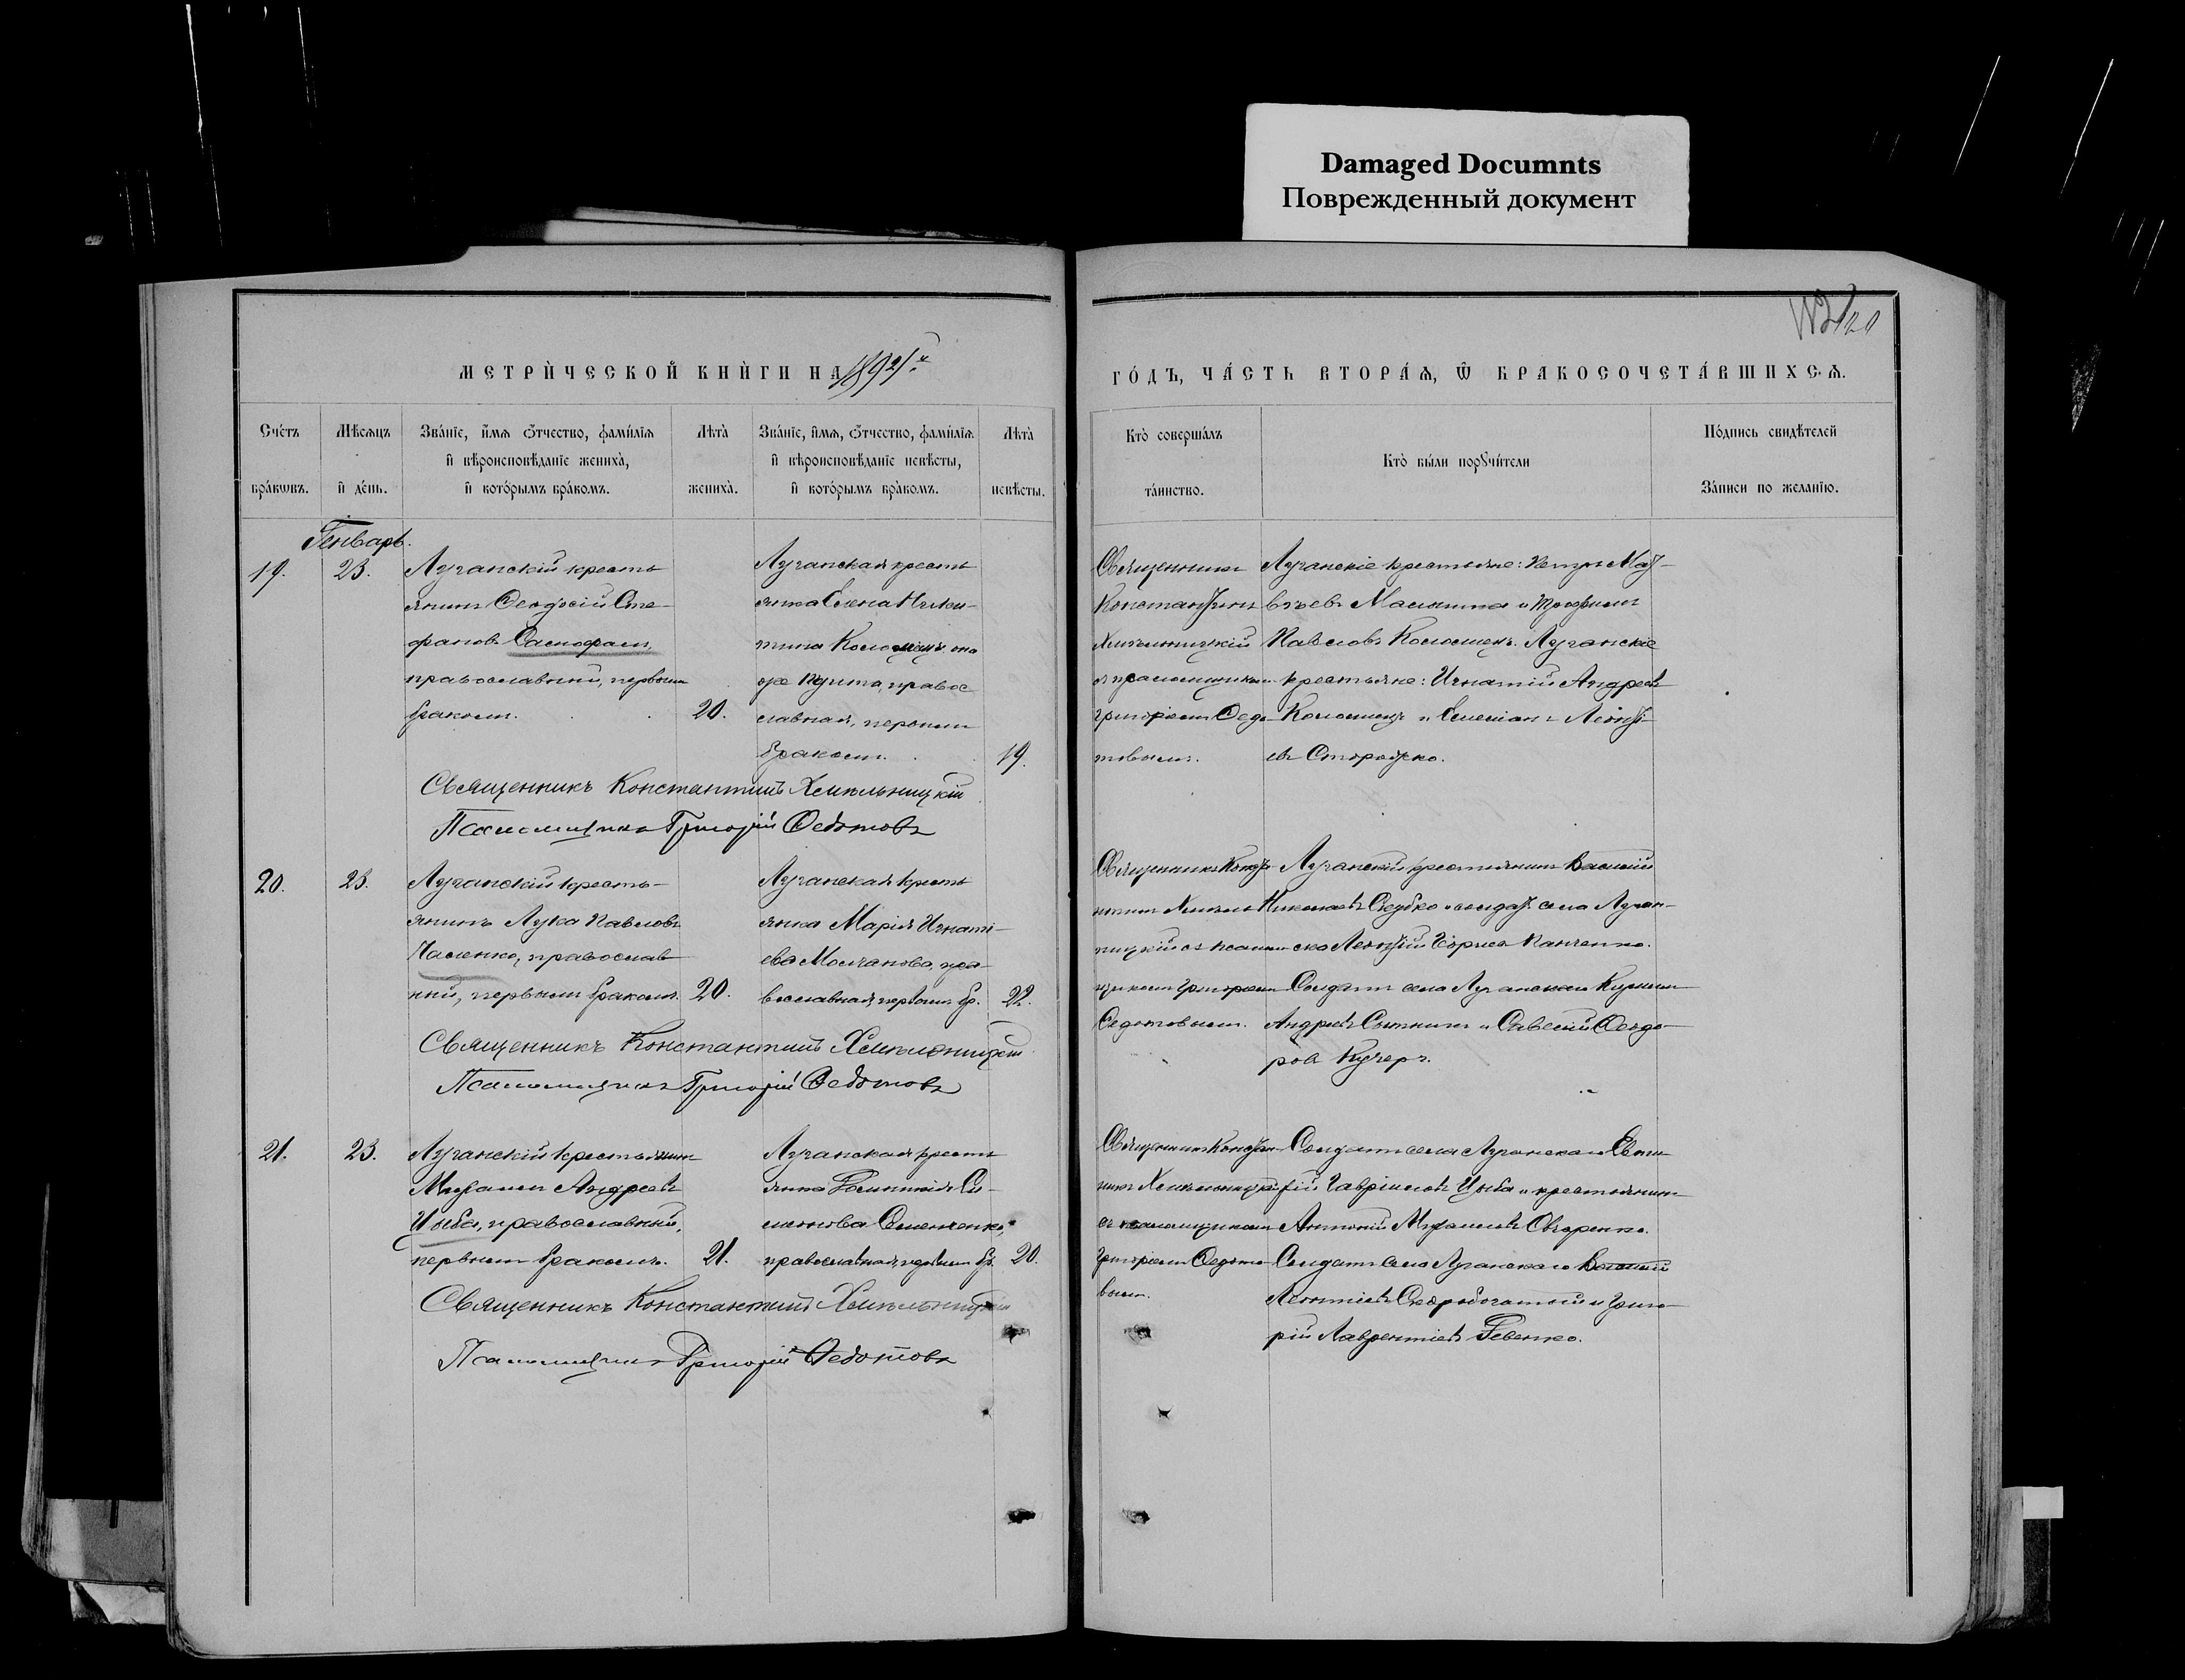 Damaged Documnts
Поврежденный документ
МЕТРИ́ЧЕСКОЙ КНИ́ГИ НА 1892й
ГО́ДЪ, ЧА́СТЬ ВТОРА́Ѧ, Ѽ БРАКОСОЧЕТА́ВШИХСѦ.
Сче́тъ бра́кѡвъ.
Мѣ́сѧцъ и де́нь.
Зва́нїе, и́мѧ ѻ́тчество, фами́лїѧ
и вѣроисповѣ́данїе жениха̀,
и кото́рымъ бра́комъ.
Лѣта̀ жениха̀.
Зва́нїе, и́мѧ, ѻ́тчество, фами́лїѧ
и вѣроисповѣ́данїе невѣ́сты,
и кото́рымъ бра́комъ.
Лѣта̀ невѣ́сты.
Кто̀ соверша́лъ
та́инство.
Кто̀ бы́ли порꙋчи́тели
По́дпись свидѣ́телей
За́писи по жела́нїю.
Генварь.
19.
23.
Луганскій кресть
янинъ Ѳеодосій Сте-
фановъ
православный, первымъ
бракомъ.
20.
Луганская кресть
янка Елена Ники-
тина Коломіецъ она
же Пугита, правос
славная, первымъ
бракомъ.
19.
Священникъ
Константинъ
Хмѣльницкій
съ псаломщикомъ
Григоріемъ Ѳедо-
товымъ.
Луганскіе крестьяне: Петръ Мат-
вѣевъ и Трофимъ
Павловъ Коломіецъ. Луганскіе
крестьяне: Игнатій Андреевъ
Коломіецъ и Емеліанъ Леонті-
евъ
Священникъ Константинъ Хмѣльницкій
Псаломщикъ Григорій Ѳедотовъ
20.
23.
Луганскій кресть-
янинъ Лука Павловъ
православ
ный, первымъ бракомъ.
20.
Луганская кресть
янка Марія Игнаті-
ева Молчанова, пра-
вославная, первымъ бр.
22.
Священникъ Конста-
нтинъ Хмѣль
ницкій съ псалом
щикомъ Григоріемъ
Ѳедотовымъ.
Луганскій крестьянинъ Василій
Николаевъ и солдатъ села Луган-
ска Леонтій Панченко.
Солдатъ села Луганскаго
Андреевъ Сытникъ и Савелій Ѳеодо-
ровъ Кучеръ.
Священникъ Константинъ Хмѣльницкій
Псаломщикъ Григорій Ѳедотовъ
21.
23.
Луганскій крестьянинъ
Михаилъ Андреевъ
Цыба, православный,
первымъ бракомъ.
21.
Луганская кресть
янка Си-
меонова Семенченко,
православная, первымъ бр.
20.
Священникъ Констан
тинъ Хмѣльницкій
съ псаломщикомъ
Григоріемъ Ѳедото
вымъ.
Солдатъ села Луганскаго Евти-
фій Гавріиловъ Цыба и крестьянинъ
Антоній Михаиловъ Овчаренко.
Солдатъ села Луганскаго Василій
Леонтіевъ Скоробогатый и Григо-
рій Лаврентіевъ Ревенко.
Священникъ Константинъ Хмѣльницкій
Псаломщикъ Григорій Ѳедотовъ